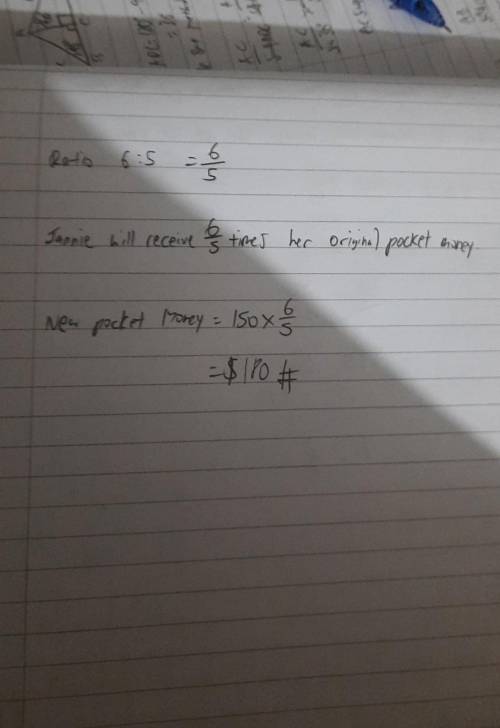 Ratio 6:5 = 6/5
Jannie will receive 6/5 times her original pocket money.
New pocket Money = 150 × 6/5
= $180 #